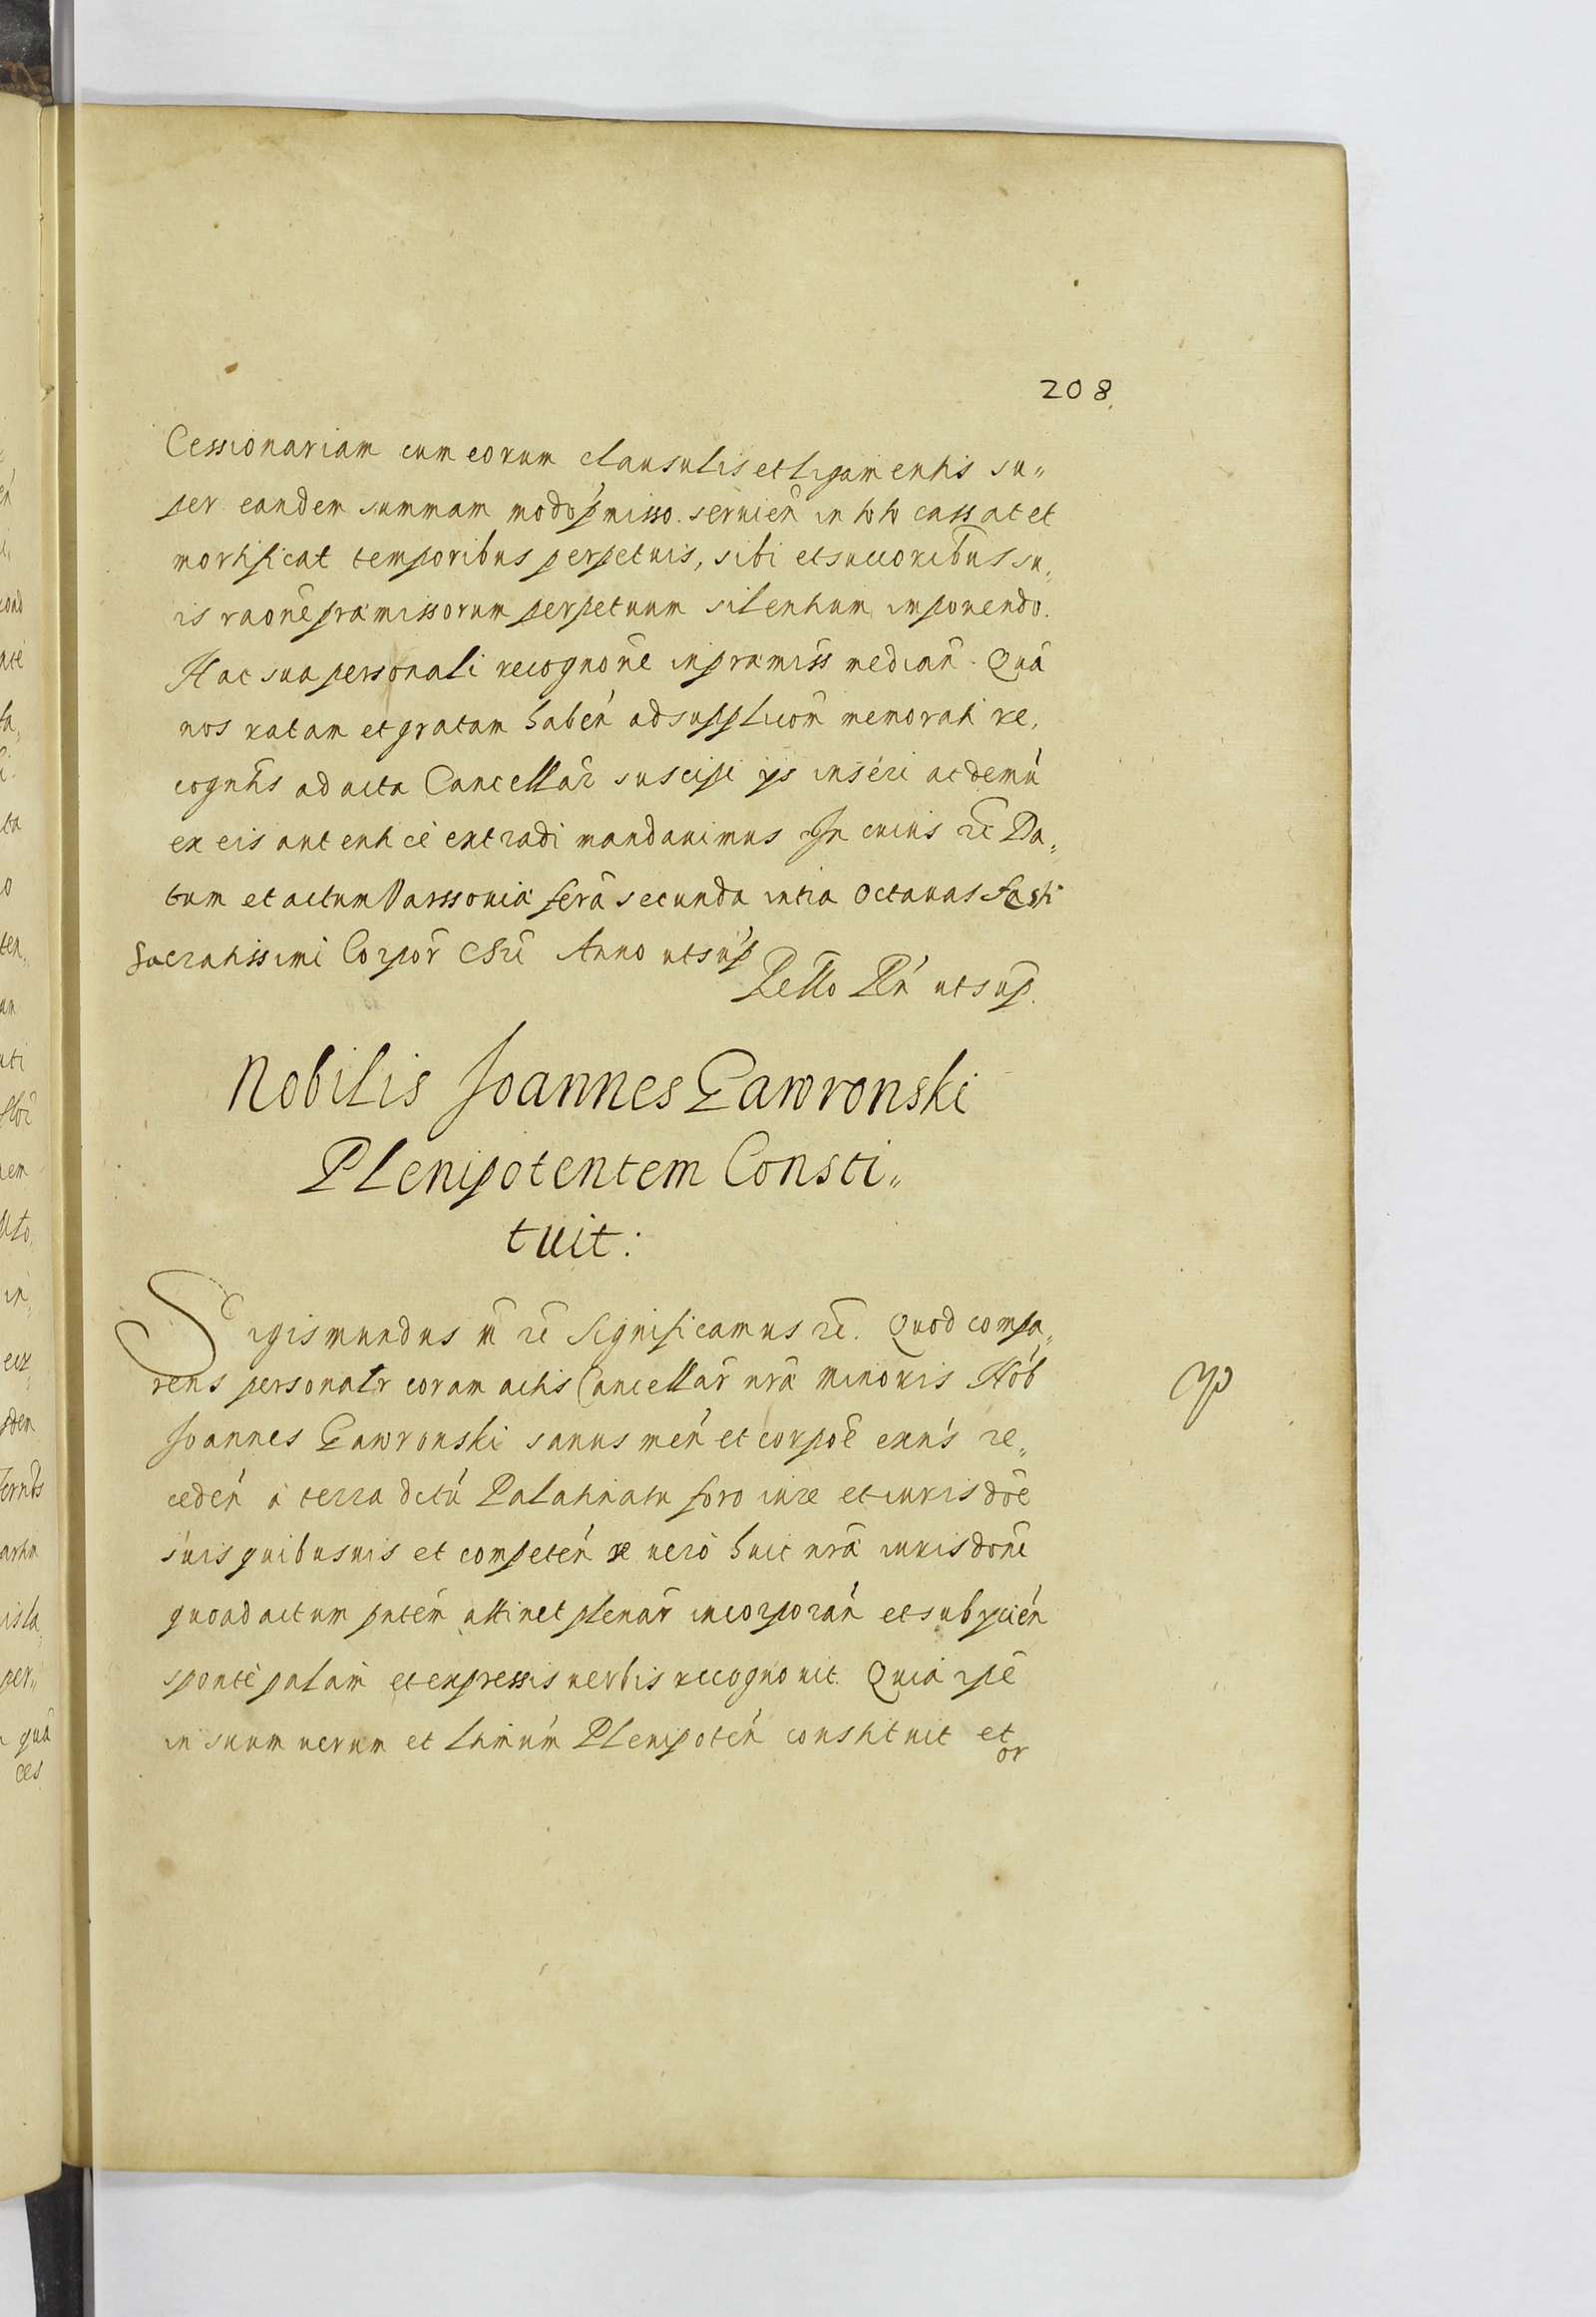 208.
Cessionariam cum eorum clausulis et ligamentis su„
per eandem summam modo p̃misso seruień in toto cassat et
mortificat temporibus perpetuis, sibi et succoribus su„
is raõne præmissorum perpetuum silentium imponendo.
Hac sua personali recognõne in præmiss̃ mediañ. Quã
nos ratam et gratam habeń ad supplicoñ memorati re„
cogñtis ad acta Cancellar̃ suscipi ijs inseri ac demũ
ex eis autenticè extradi mandauimus In cuius rẽ Da„
tum et actum Varssouiæ ferã secunda intra Octauas Festi
Sacratissimi Corpor̃ Chri Anno ut sup̃
Rel̃lo Pl̃ń ut sup̃.
Nobilis Joannes Gawronski
Plenipotentem Consti„
tuit:
Sigismundus ıı̃ı rẽ Significamus rẽ. Quod compa„
rens personalr coram actis Cancellar̃ nr̃æ minoris Nob́
Joannes Gawronski sanus meń et corpoẽ exñs re„
cedeń à terra dictú Palatinatu foro iure et iurisdõe
suis quibusuis et competeń se uerò huic nr̃æ iurisdõni
quoad actum pñtem attinet plenar̃ incorporań et subycień
spontè palàm et expressis uerbis recognouit. Quia ipẽ
in suum uerum et ltimum Plenipoteń constituit et
or